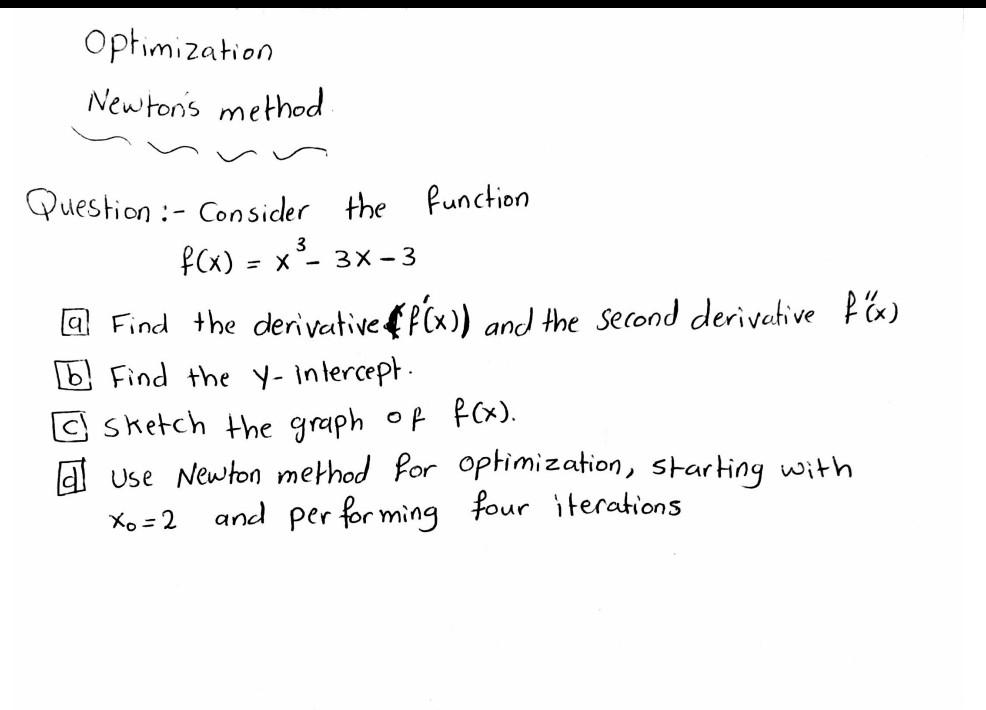 Optimization
Newton's method
Question :- Consider the function
f(x) = x³ - 3x - 3
a Find the derivative (f'(x)) and the second derivative f''(x)
b Find the y-intercept.
c sketch the graph of f(x).
d Use Newton method for optimization, starting with
x₀ = 2 and performing four iterations